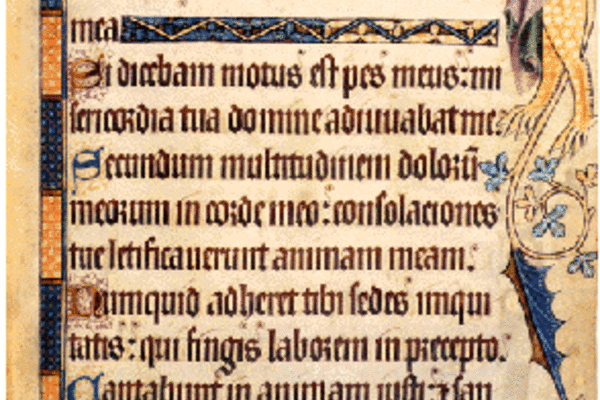 mea
Si dicebam motus est pes meus: mi
sericordia tua domine adiuuabat me.
Secundum multitudinem dolorū
meorum in corde meo: consolaciones
tue letificauerunt animam meam.
Numquid adheret tibi sedes iniqui
tatis: qui fingis laborem in precepto.
Captabunt in animam iusti: ⁊ san